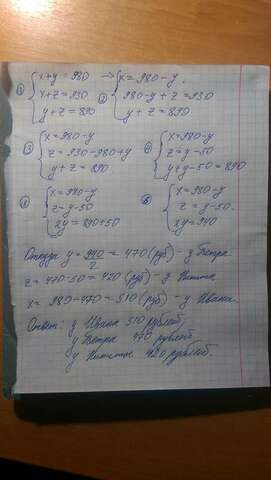 ① { x+y=980 → { x=980-y
x+z=930 ② 980-y+z=930
y+z=890 y+z=890
③ { x=980-y ④ { x=980-y
z=930-980+y z=y-50
y+z=890 y+y-50=890
{ x=980-y { x=980-y
z=y-50 z=y-50
2y=890+50 2y=940
Откуда y=940/2=470 (руб) - у Петра
z=470-50=420 (руб) - у Никиты
x=980-470=510 (руб) - у Ивана.
Ответ: у Ивана 510 рублей,
у Петра 470 рублей
у Никиты 420 рублей.